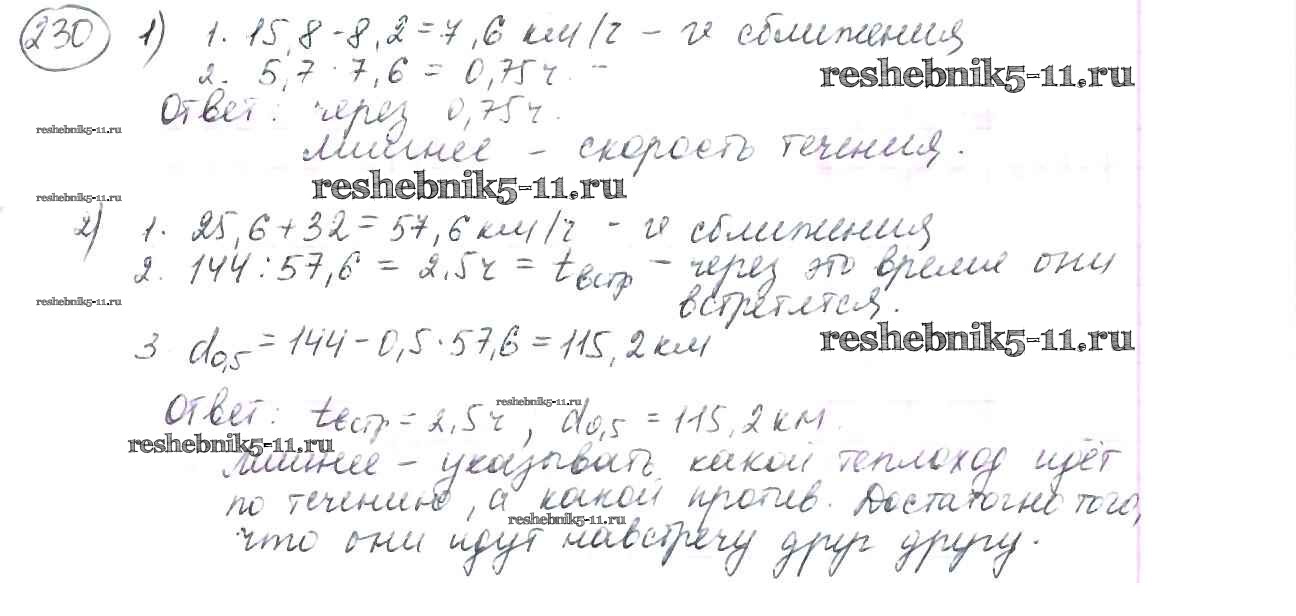 230 1) 1. 15,8-8,2=7,6 км/ч - v сближения
2. 5,7 : 7,6 = 0,75ч. -
reshebnik5-11.ru
Ответ: через 0,75ч.
reshebnik5-11.ru
лишнее - скорость течения.
reshebnik5-11.ru
reshebnik5-11.ru
2) 1. 25,6+32=57,6 км/ч - v сближения
2. 144:57,6 = 2,5ч = tвстр - через это время они
встретятся.
reshebnik5-11.ru
3 d0,5 = 144-0,5·57,6=115,2км
reshebnik5-11.ru
reshebnik5-11.ru
Ответ: tвстр = 2,5ч, d0,5 = 115,2км.
reshebnik5-11.ru
лишнее - указывать какой теплоход идёт
по течению, а какой против. Достаточно того,
reshebnik5-11.ru
что они идут навстречу друг другу.